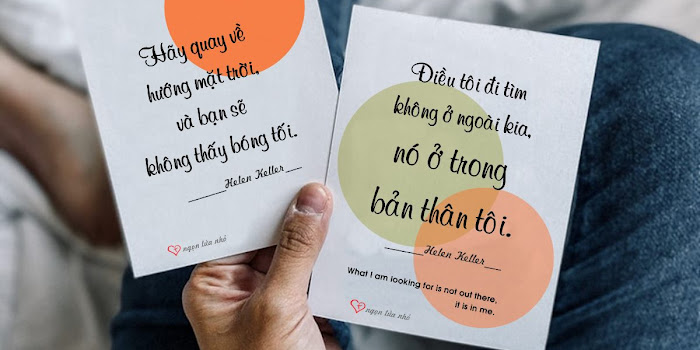 Hãy quay về
hướng mặt trời,
và bạn sẽ
không thấy bóng tối.
Helen Keller
ngọn lửa nhỏ
Điều tôi đi tìm
không ở ngoài kia,
nó ở trong
bản thân tôi.
Helen Keller
What I am looking for is not out there,
it is in me.
ngọn lửa nhỏ